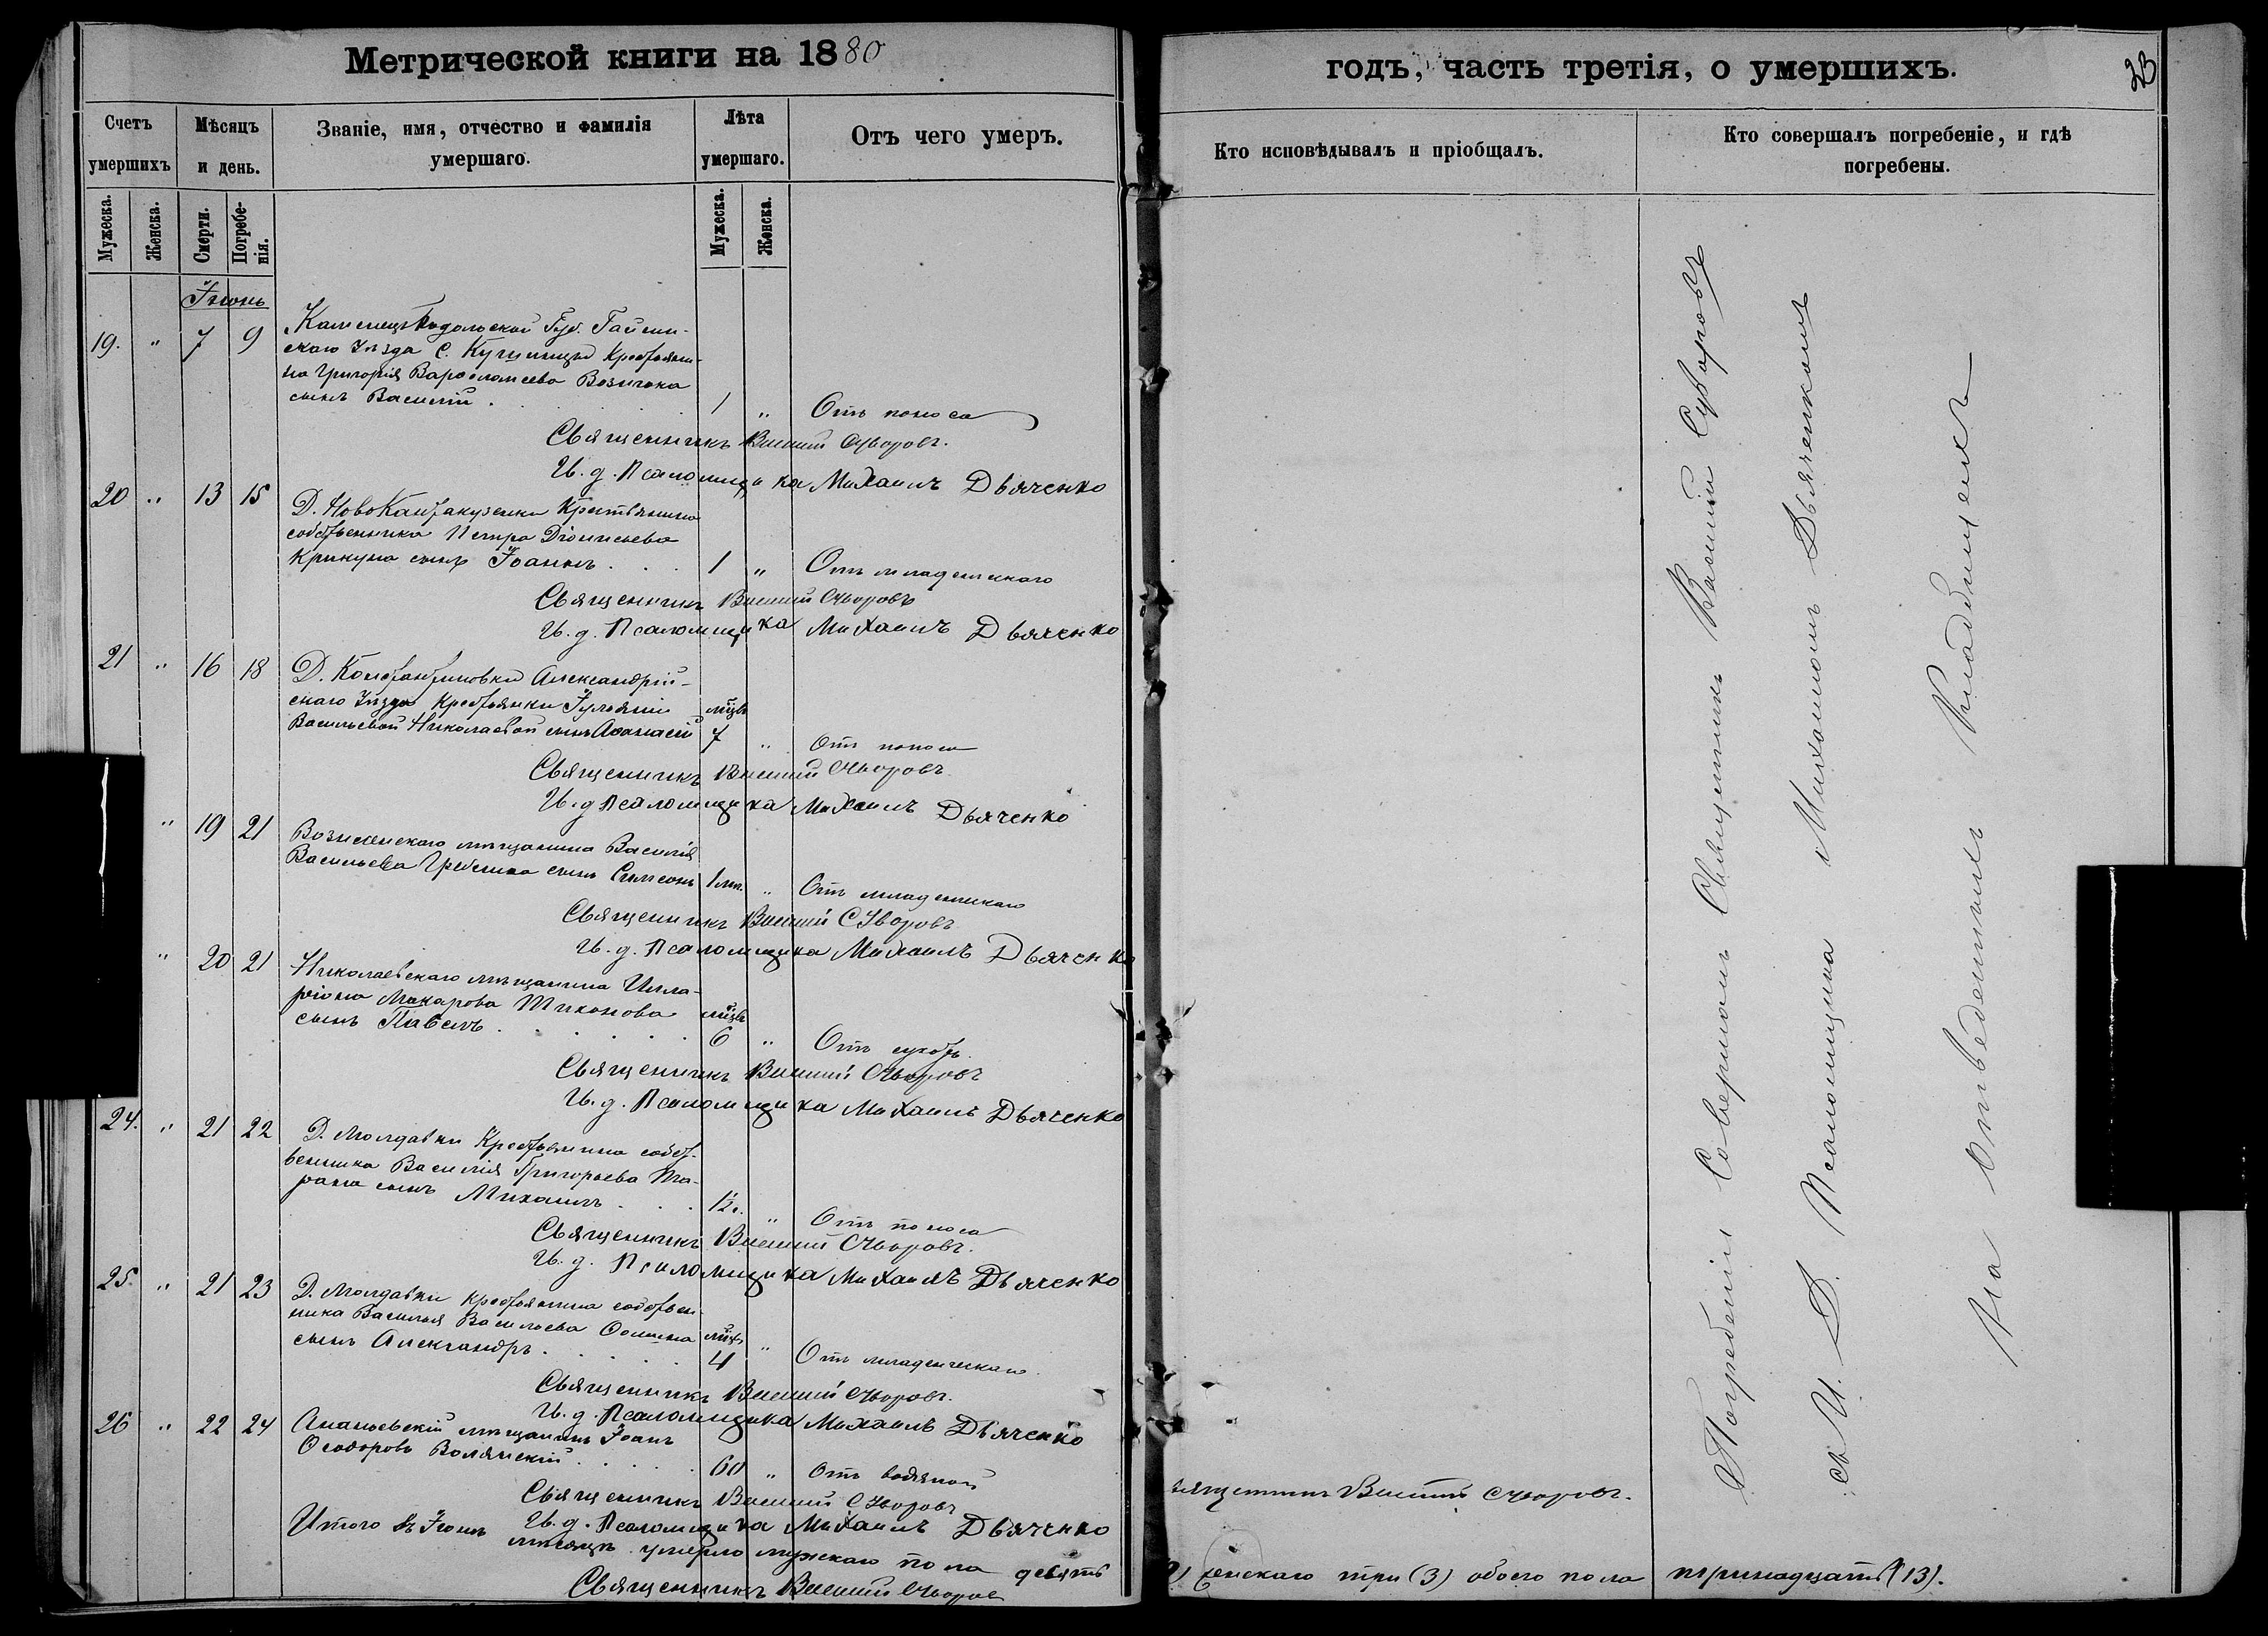 Метрической книги на 1880
годъ, часть третія, о умершихъ.
23
Счетъ умершихъ
Мѣсяцъ и день.
Званіе, имя, отчество и фамилія умершаго.
Лѣта умершаго.
Отъ чего умеръ.
Кто исповѣдывалъ и пріобщалъ.
Кто совершалъ погребеніе, и гдѣ погребены.
Мужеска.
Женска.
Смерти.
Погребенія.
Мужеска.
Женска.
Іюнь
19. " 7 9 Каменецъ Подольской Губ. Гайсин-
скаго Уѣзда С. Крестьяни-
на Григорія Варѳоломеева
сынъ Василій . 1 " Отъ поноса
Священникъ Василій Суворовъ.
И. д. Псаломщика Михаилъ Дьяченко
20 " 13 15 Д. Ново Кантакузенки Крестьянина
собственника Петра Діонисьева
Крикуна сынъ Іоаннъ . . . 1 " Отъ младенческаго
Священникъ Василій Суворовъ
И. д. Псаломщика Михаилъ Дьяченко
21 " 16 18 Д. Константиновки Александрій-
скаго Уѣзда Крестьянки Іуліаніи мѣц.
Васильевой Николаевой сынъ Аѳанасій 7 " Отъ поноса
Священникъ Василій Суворовъ
И. д Псаломщика Михаилъ Дьяченко
" 19 21 Вознесенскаго мѣщанина Василія
Васильева Гребенка сынъ Симеонъ 1 " Отъ младенческаго
Священникъ Василій Суворовъ
И. д. Псаломщика Михаилъ Дьяченко
" 20 21 Николаевскаго мѣщанина Илла-
ріона Макарова Тихонова мѣц.
сынъ Павелъ . . . . 6 " Отъ сухотъ.
Священникъ Василій Суворовъ
И. д. Псаломщика Михаилъ Дьяченко
24. " 21 22 Д. Молдавки Крестьянина собст-
венника Василія Григорьева Та-
рана сынъ Михаилъ . . . " Отъ поноса
Священникъ Василій Суворовъ.
И. д. Псаломщика Михаилъ Дьяченко
25. " 21 23 Д. Молдавки Крестьянина собствен-
ника Василья Васильева мѣц.
сынъ Александръ . . . . 4 " Отъ младенческаго.
Священникъ Василій Суворовъ.
И. д. Псаломщика Михаилъ Дьяченко
26 " 22 24 Ананьевскій мѣщанинъ Іоанъ
Ѳеодоровъ Волянскій . . . . 60 " Отъ водяной
Священникъ Василій Суворовъ
И. д. Псаломщика Михаилъ Дьяченко
Итого въ Іюнѣ мѣсяцѣ умерло мужскаго пола девять
женскаго три (3) обоего пола тринадцать (13).
Священникъ Василій Суворовъ
вященникъ Василій Суворовъ.
Погребеніе Совершалъ Священникъ Василій Суворовъ
съ И. Д. Псаломщика Михаиломъ Дьяченкомъ
На отведенныхъ Кладбищахъ